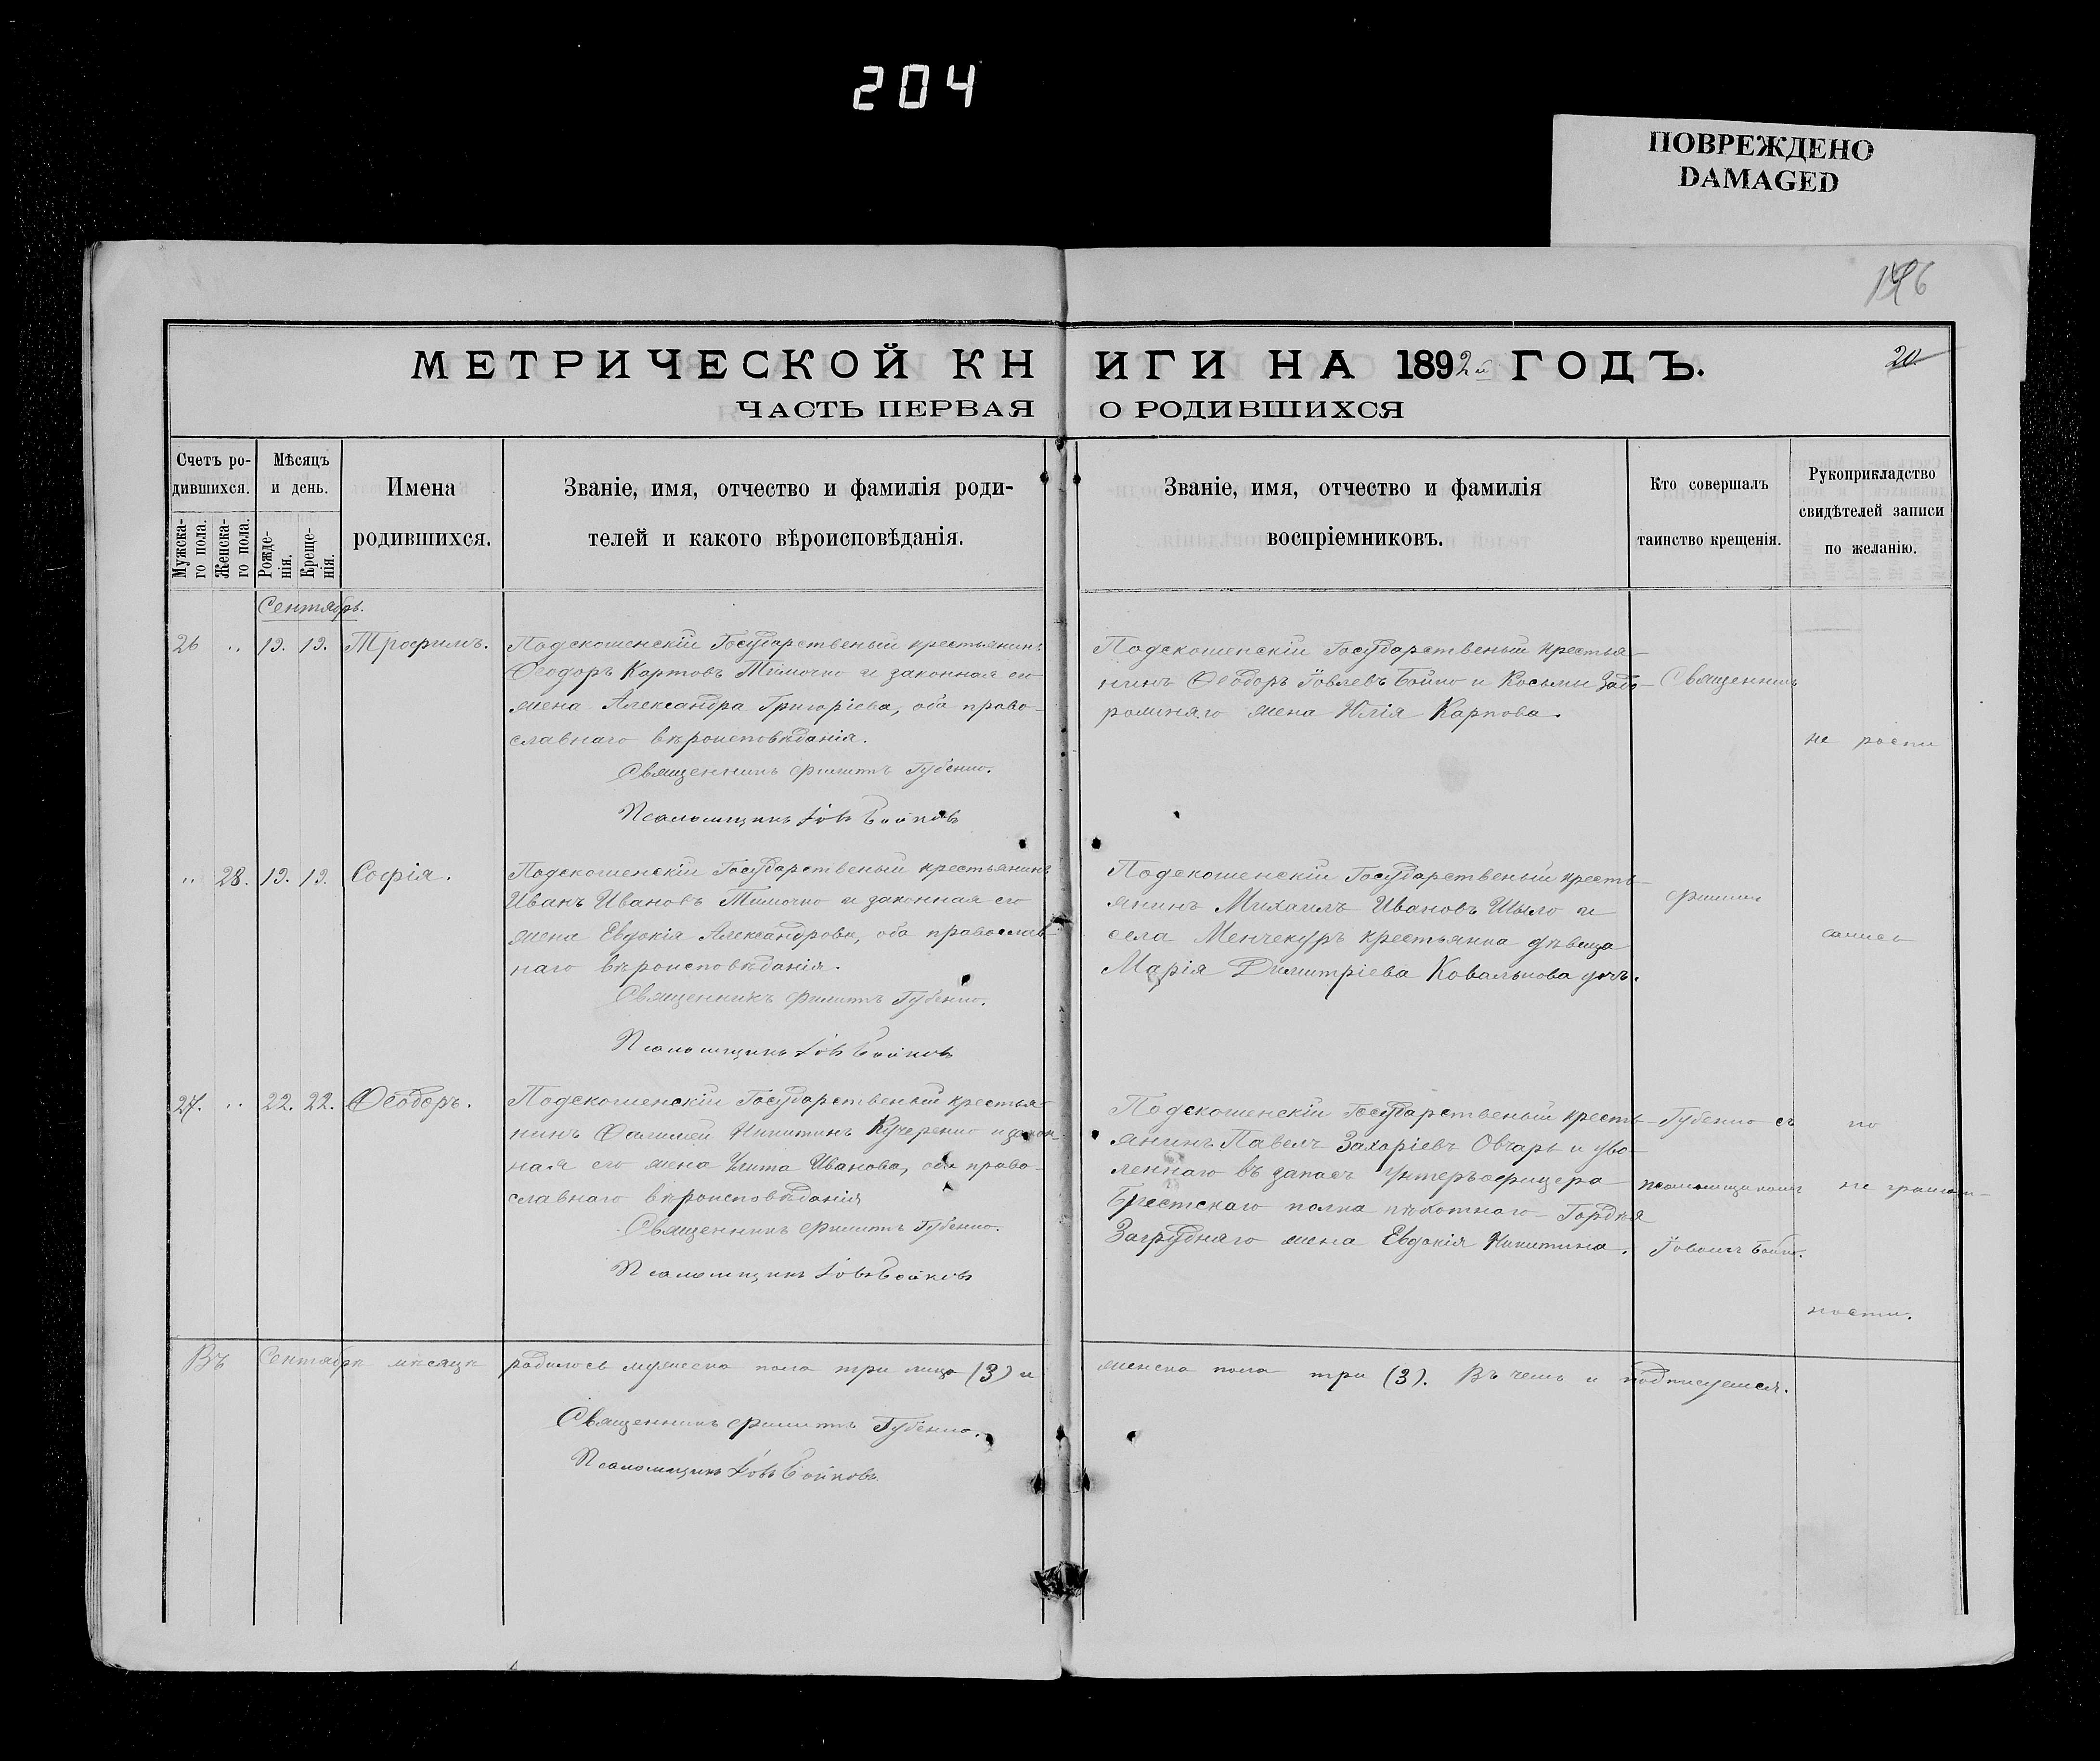 204
ПОВРЕЖДЕНО
DAMAGED
20
МЕТРИЧЕСКОЙ КНИГИ НА 1892й ГОДЪ.
ЧАСТЬ ПЕРВАЯ О РОДИВШИХСЯ
Счетъ ро-
дившихся.
Мужска-
го пола.
Женска-
го пола.
Мѣсяцъ
и день.
Рожде-
нія.
Креще-
нія.
Имена
родившихся.
Званіе, имя, отчество и фамилія роди-
телей и какого вѣроисповѣданія.
Званіе, имя, отчество и фамилія
воспріемниковъ.
Кто совершалъ
таинство крещенія.
Рукоприкладство
свидѣтелей записи
по желанію.
Сентябрь.
26 " 13. 13. Трофимъ.
Подскошенскій Государственый крестьянинъ
Ѳеодоръ Тимочко и законная его
жена Александра Григоріева, оба право-
славнаго вѣроисповѣданія.
Священникъ Филиппъ Губенко.
Псаломщикъ Іовъ Бойковъ
Подскошенскій Государственый крестья-
нинъ Ѳеодоръ Іовлевъ Бойко и Косьмы
жена Юлія Карпова.
" 28. 13. 13. Софія.
Подскошенскій Государственый крестьянинъ
Иванъ Ивановъ Тимочко и законная его
жена Евдокія Александрова, оба православ-
наго вѣроисповѣданія.
Священникъ Филиппъ Губенко.
Псаломщикъ Іовъ Бойковъ
Подскошенскій Государственый кресть-
янинъ Михаилъ Ивановъ Шыло и
села Менчекуръ крестьянка дѣвица
Марія Димитріева Ковалькова дочь.
27. " 22. 22. Ѳеодоръ.
Подскошенскій Государственый крестья-
нинъ Никитинъ Кучеренко и закон-
ная его жена Улита Иванова, оба право-
славнаго вѣроисповѣданія
Священникъ Филиппъ Губенко.
Псаломщикъ Іовъ Бойковъ
Подскошенскій Государственый кресть-
янинъ Павелъ Захаріевъ Овчаръ и уво-
леннаго въ запасъ унтеръофицера
Брестскаго полка пѣхотнаго Гордѣя
Загрудняго жена Евдокія Никитина.
Священникъ
Филиппъ
Губенко съ
псаломщикомъ
Іовомъ Бойко.
не роспи
сались
по
не грамот-
ности.
Въ Сентябрѣ мѣсяцѣ родилось мужеска пола три лица (3) и
женска пола три (3). Въ чемъ и подписуемся.
Священникъ Филиппъ Губенко.
Псаломщикъ Іовъ Бойковъ.